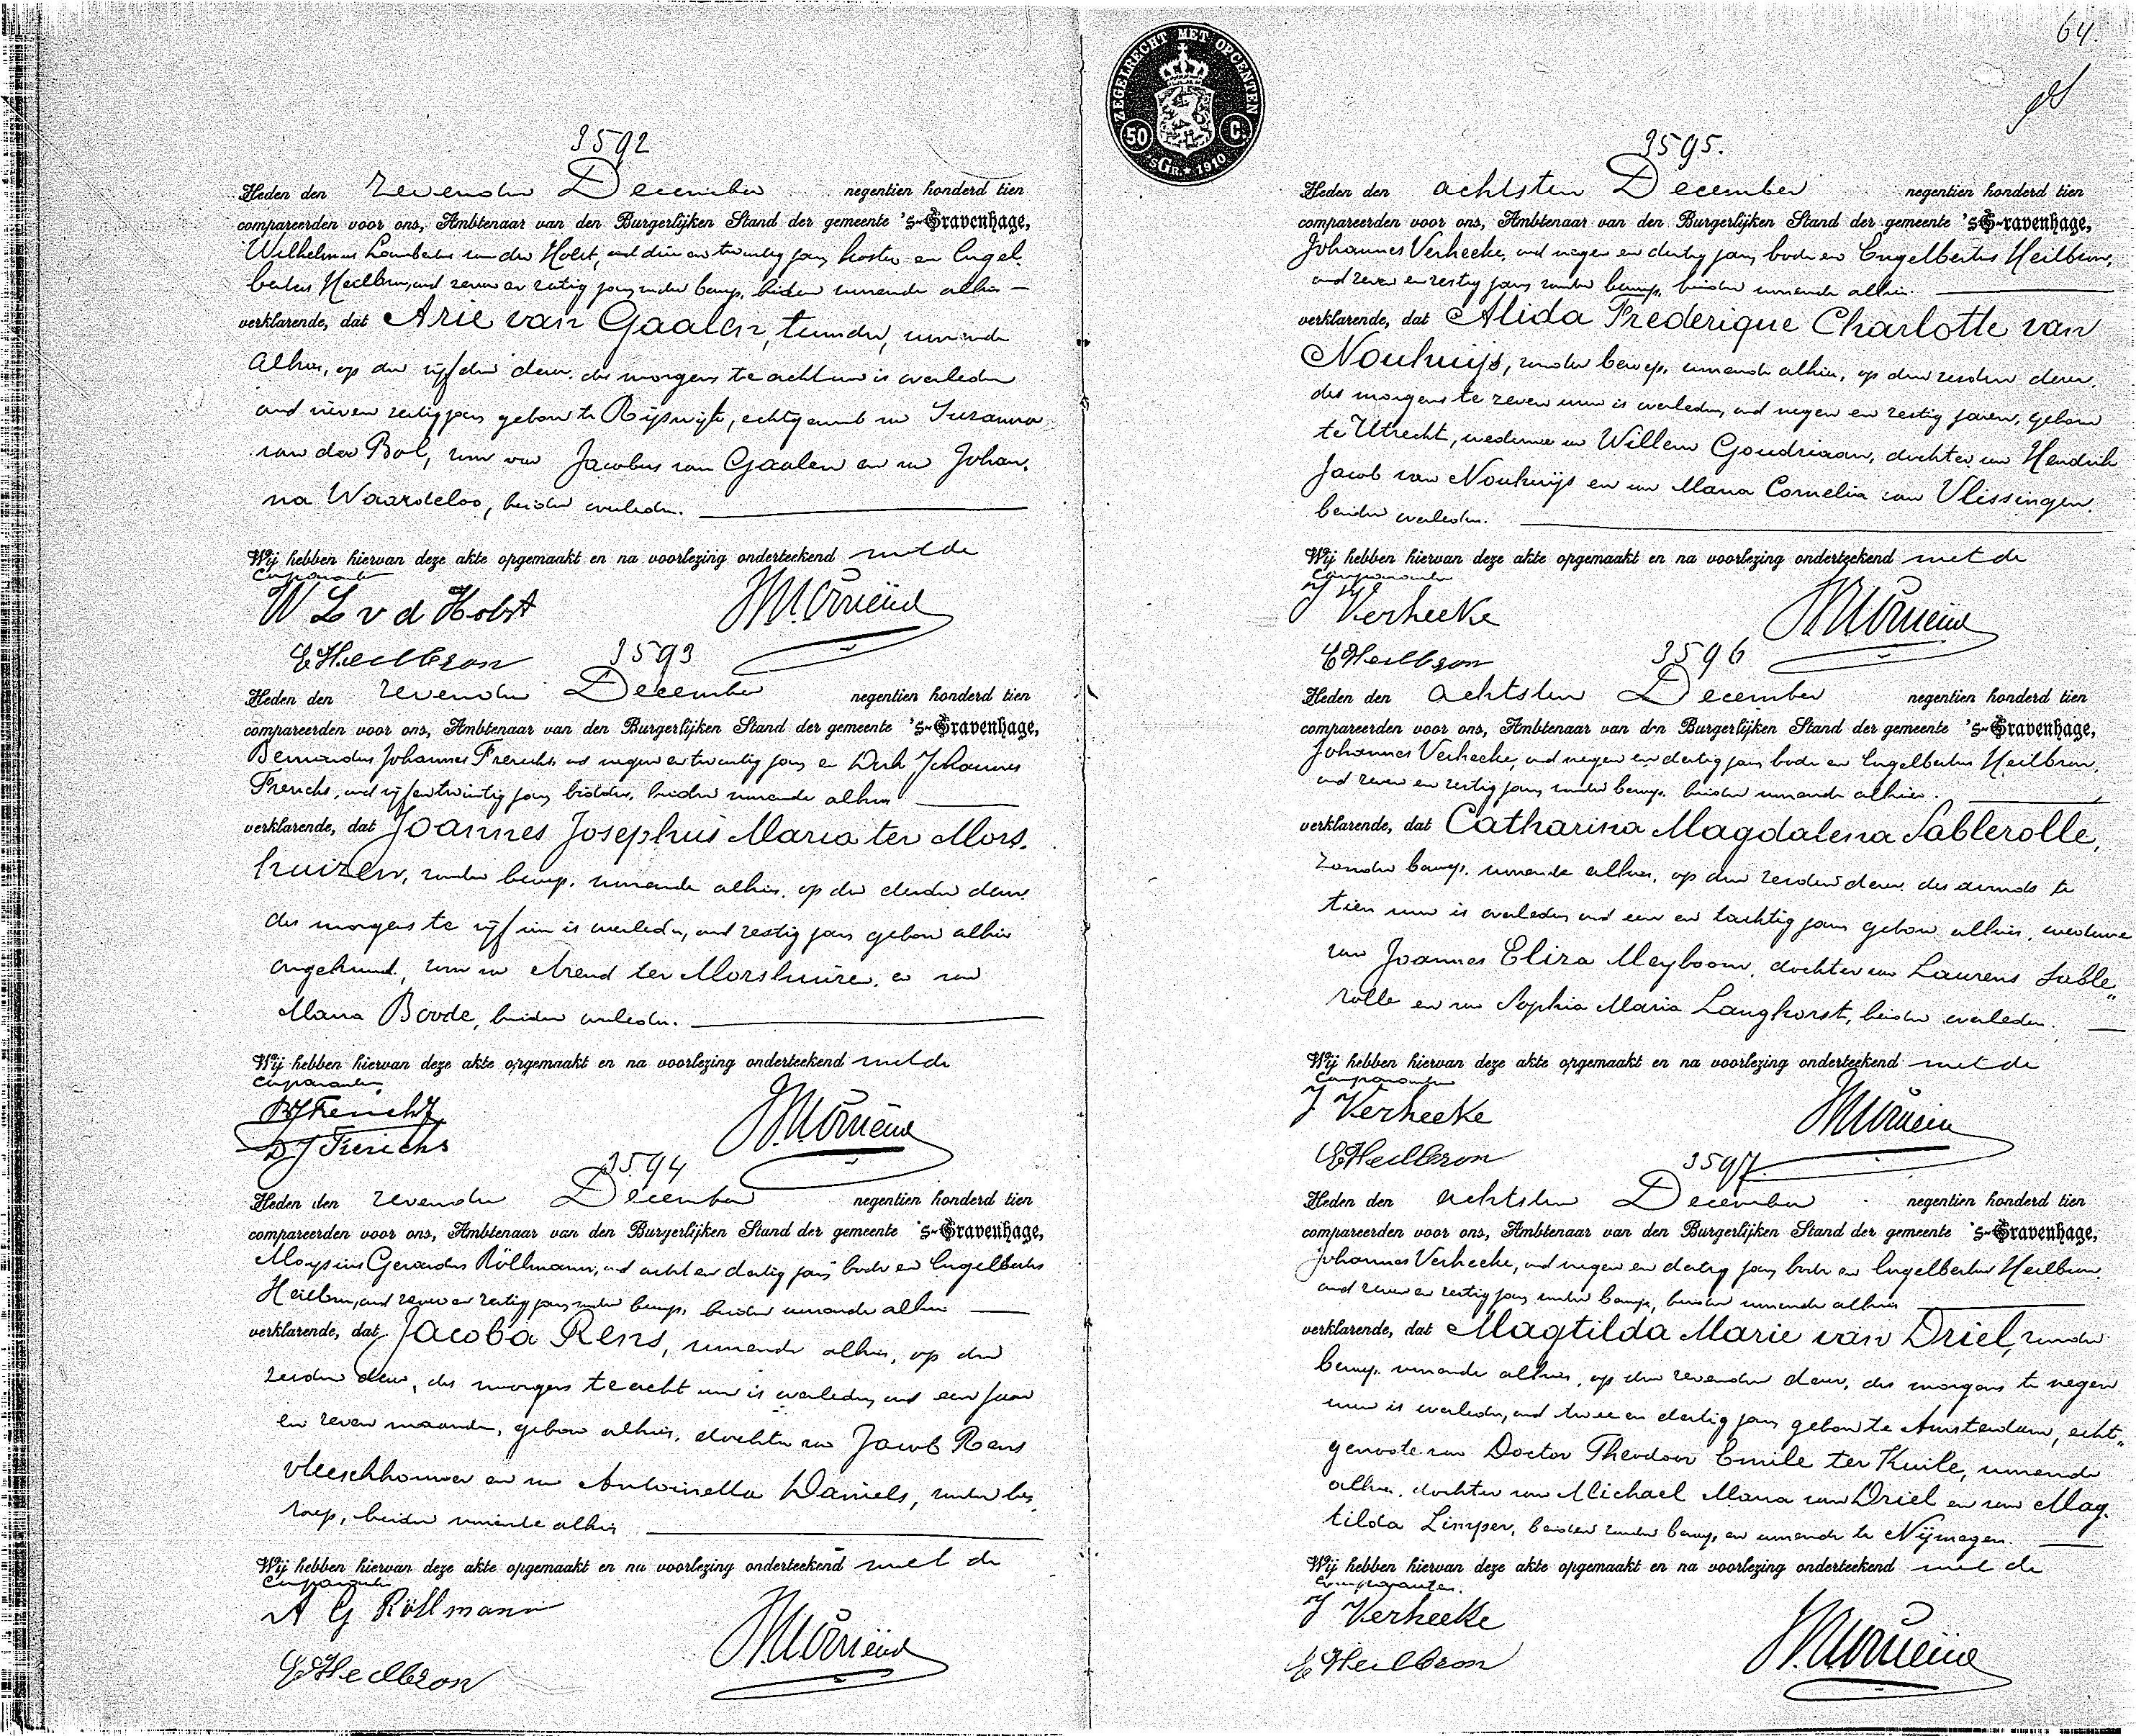 3592
Heden den zevenden December negentien honderd tien
compareerden voor ons, Ambtenaar van den Burgerlijken Stand der gemeente 's-Gravenhage,
Wilhelmus Lambertus van der Holst, oud drie en twintig jaar, koster en Engel-
bertus Heilbron, oud zeven en zestig jaar, zonder beroep, beiden wonende alhier
verklarende, dat Arie van Gaalen, tuinder, wonende
alhier, op den vijfden dezer, des morgens te acht ure is overleden
oud en zestig jaar, geboren te Rijswijk, echtgenoot van Suzanna
van der Bol, zoon van Jacobus van Gaalen en van Johan-
na Waardeloo, beiden overleden.
Wij hebben hiervan deze akte opgemaakt en na voorlezing onderteekend met de
Comparanten
W L v d Holst
E Heilbron
3593
Heden den zevenden December negentien honderd tien
compareerden voor ons, Ambtenaar van den Burgerlijken Stand der gemeente 's-Gravenhage,
Bernardus Johannes Frerichs, oud negen en twintig jaar en Dirk Johannes
Frerichs, oud vijf en twintig jaar, bidders, beiden wonende alhier
verklarende, dat Joannes Josephus Maria ter Mors-
huizen, zonder beroep, wonende alhier, op den derden dezer
des morgens te vijf ure is overleden, oud zestig jaar, geboren alhier
ongehuwd, zoon van Arend ter Morshuizen en van
Maria Boode, beiden overleden.
Wij hebben hiervan deze akte opgemaakt en na voorlezing onderteekend met de
Comparanten
BJ Frerichs
D.J Frerichs
3594
Heden den zevenden December negentien honderd tien
compareerden voor ons, Ambtenaar van den Burgerlijken Stand der gemeente 's-Gravenhage,
Aloysius Gerardus Röllmann, oud acht en dertig jaar, bode en Engelbertus
Heilbron, oud zeven en zestig jaar, zonder beroep, beiden wonende alhier
verklarende, dat Jacoba Rens, wonende alhier, op den
zesden dezer, des morgens te acht ure is overleden, oud een jaar
en zeven maanden, geboren alhier, dochter van Jacob Rens
vleeschhouwer en van Antoinetta Daniels, zonder be-
roep, beiden wonende alhier
Wij hebben hiervan deze akte opgemaakt en na voorlezing onderteekend met de
Comparanten
A G Röllmann
E Heilbron
64.
ZEGELRECHT MET OPCENTEN
50 C.
'sGR. 1910
3595.
Heden den achtsten December negentien honderd tien
compareerden voor ons, Ambtenaar van den Burgerlijken Stand der gemeente 's-Gravenhage,
Johannes Verheeke, oud negen en dertig jaar, bode en Engelbertus Heilbron,
oud zeven en zestig jaar, zonder beroep, beiden wonende alhier.
verklarende, dat Alida Frederique Charlotte van
Nouhuijs, zonder beroep, wonende alhier, op den zesden dezer,
des morgens te zeven ure is overleden, oud negen en zestig jaren, geboren
te Utrecht, weduwe van Willem Goudriaan, dochter van Hendrik
Jacob van Nouhuijs en van Maria Cornelia van Vlissingen.
beiden overleden.
Wij hebben hiervan deze akte opgemaakt en na voorlezing onderteekend met de
Comparanten
J Verheeke
E Heilbron
3596
Heden den achtsten December negentien honderd tien
compareerden voor ons, Ambtenaar van den Burgerlijken Stand der gemeente 's-Gravenhage,
Johannes Verheeke, oud negen en dertig jaar, bode en Engelbertus Heilbron,
oud zeven en zestig jaar, zonder beroep, beiden wonende alhier.
verklarende, dat Catharina Magdalena Sablerolle,
zonder beroep, wonende alhier, op den zesden dezer, des avonds te
tien ure is overleden, oud een en tachtig jaar, geboren alhier, weduwe
van Joannes Eliza Meyboom, dochter van Laurens Sable„
rolle en van Sophia Maria Langhorst, beiden overleden.
Wij hebben hiervan deze akte opgemaakt en na voorlezing onderteekend met de
Comparanten
J Verheeke
E Heilbron
3597
Heden den achtsten December negentien honderd tien
compareerden voor ons, Ambtenaar van den Burgerlijken Stand der gemeente 's-Gravenhage,
Johannes Verheeke, oud negen en dertig jaar, bode en Engelbertus Heilbron,
oud zeven en zestig jaar, zonder beroep, beiden wonende alhier
verklarende, dat Magtilda Marie van Driel, zonder
beroep, wonende alhier, op den zevenden dezer, des morgens te negen
ure is overleden, oud twee en dertig jaar, geboren te Amsterdam, echt„
genoote van Doctor Theodoor Emile ter Kuile, wonende
alhier, dochter van Michael Maria van Driel en van Mag-
tilda Limper, beiden zonder beroep, en wonende te Nijmegen.
Wij hebben hiervan deze akte opgemaakt en na voorlezing onderteekend met de
Comparanten.
J Verheeke
E Heilbron